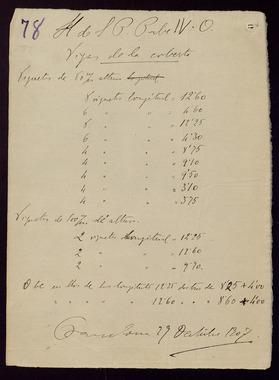 78 H de S P. Pabe IV-O.
Vigas de la coberta
Viguetas de 80 m/m altura
8 viguetas longitud = 12'60
6 " " = 4'60
8 " " = 12'25
6 " " = 4'30
4 " " = 8'75
4 " " = 9'10
4 " " = 9'50
4 " " = 3'10
4 " " = 3'75
Viguetas de 100 m/m de altura
2 viguetas longitud = 12'25
2 " " = 12'60
2 " " = 9'70
O be en lloc de las longituts 12'25 de 8'25 + 4'00
" " 12'60 " 8'60 + 4'00
Barcelona 29 Octubre 190